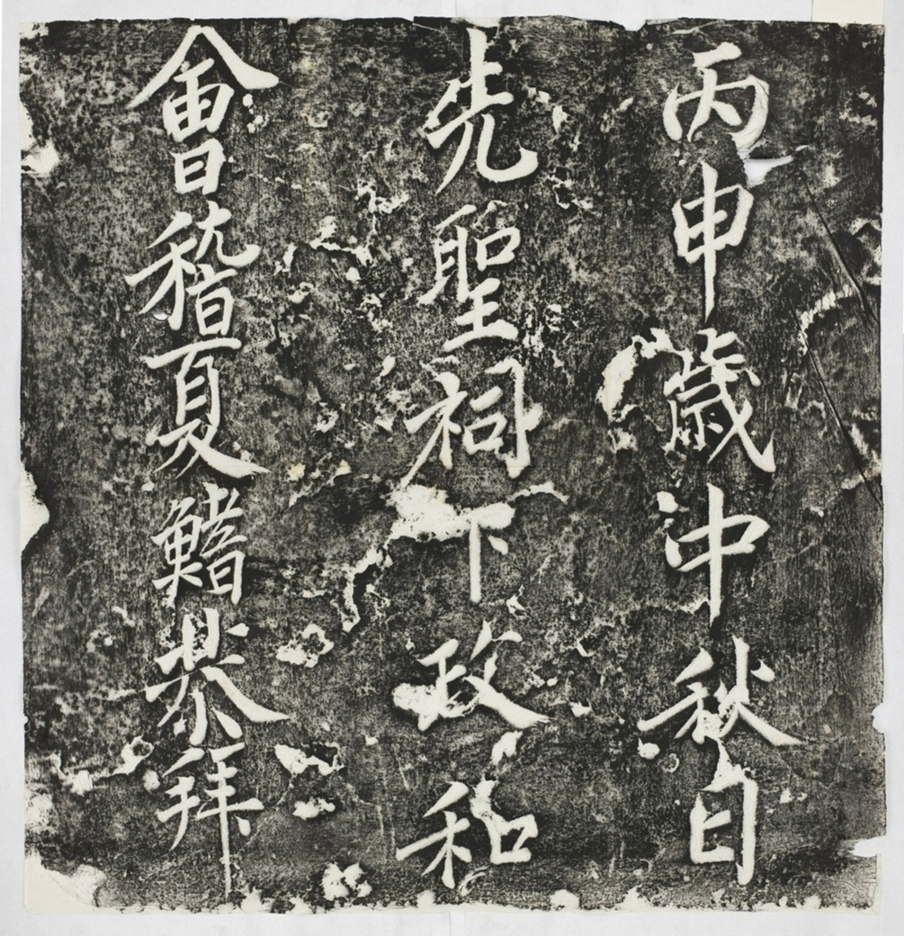 政和
丙申歲中秋日
先聖祠下
會稽夏鰭恭拜